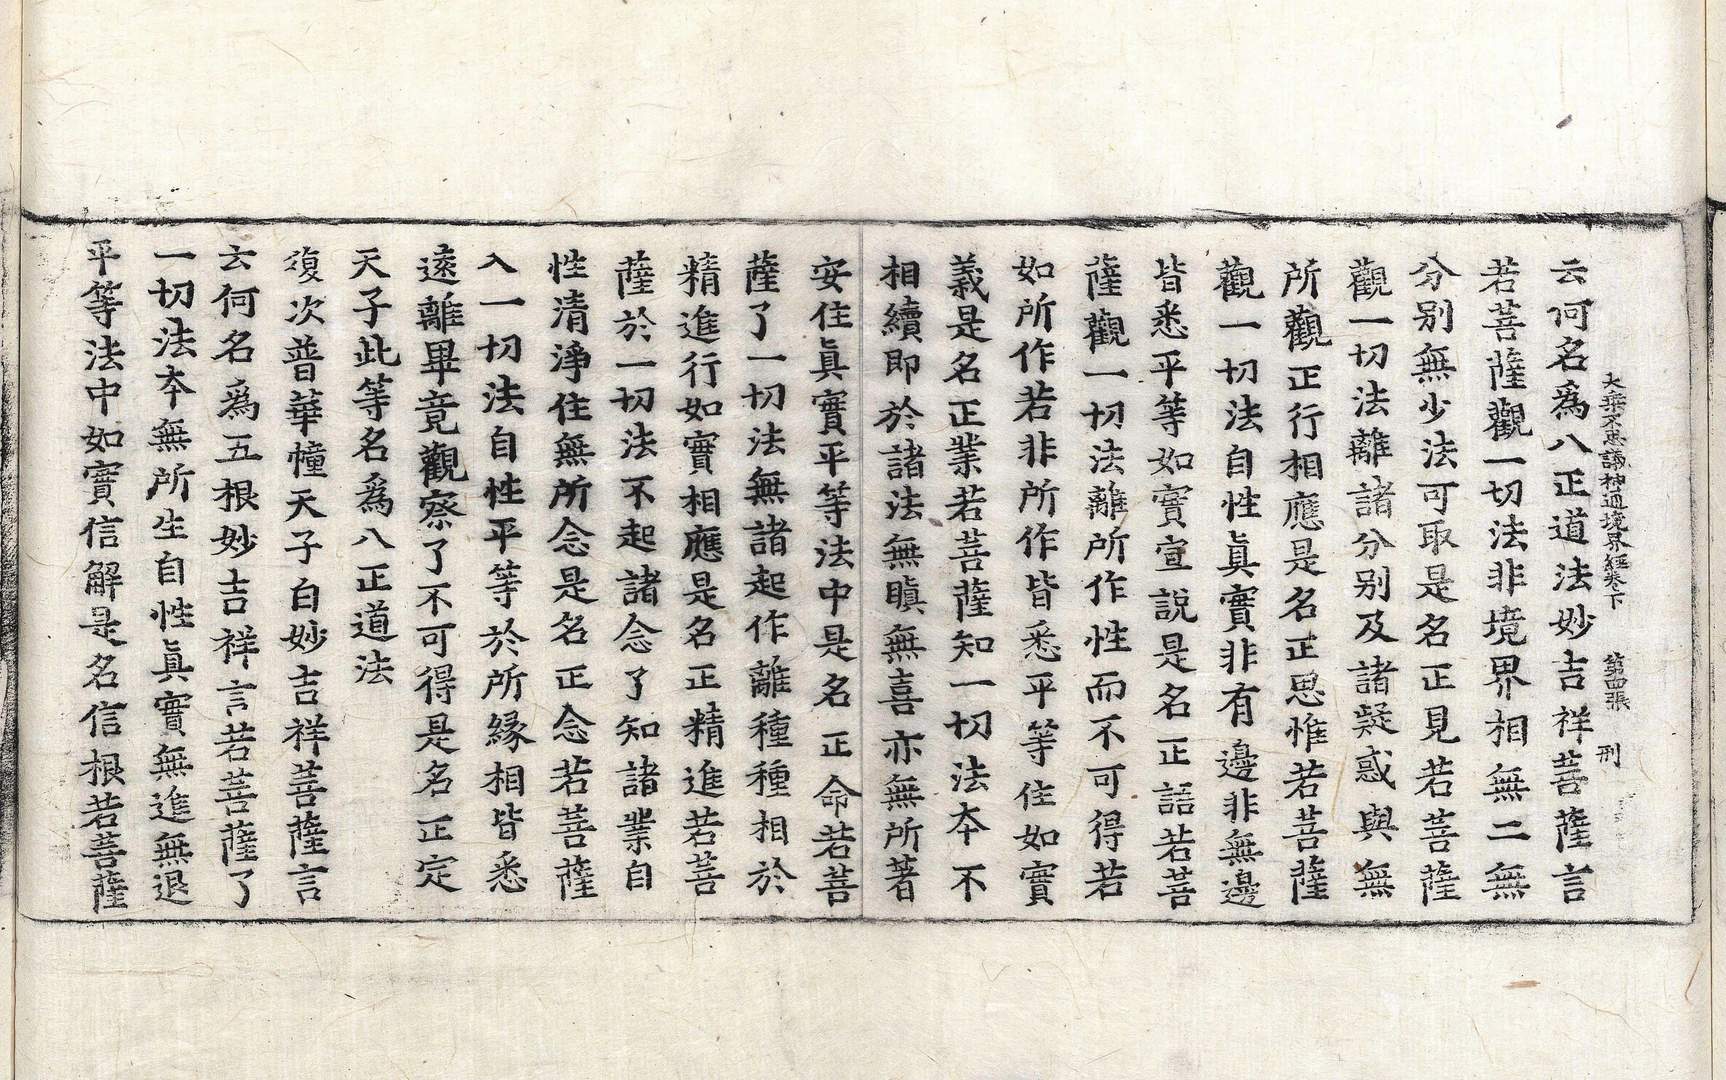 大乘不思議神通境界經卷下 第四張 刑
云何名爲八正道法妙吉祥菩薩言
若菩薩觀一切法非境界相無二無
分別無少法可取是名正見若菩薩
觀一切法離諸分別及諸疑惑與無
所觀正行相應是名正思惟若菩薩
觀一切法自性眞實非有邊非無邊
皆悉平等如實宣說是名正語若菩
薩觀一切法離所作性而不可得若
如所作若非所作皆悉平等住如實
義是名正業若菩薩知一切法本不
相續即於諸法無瞋無喜亦無所著
安住眞實平等法中是名正命若菩
薩了一切法無諸起作離種種相於
精進行如實相應是名正精進若菩
薩於一切法不起諸念了知諸業自
性清淨住無所念是名正念若菩薩
入一切法自性平等於所緣相皆悉
遠離畢竟觀察了不可得是名正定
天子此等名爲八正道法
復次普華幢天子白妙吉祥菩薩言
云何名爲五根妙吉祥言若菩薩了
一切法本無所生自性眞實無進無退
平等法中如實信解是名信根若菩薩